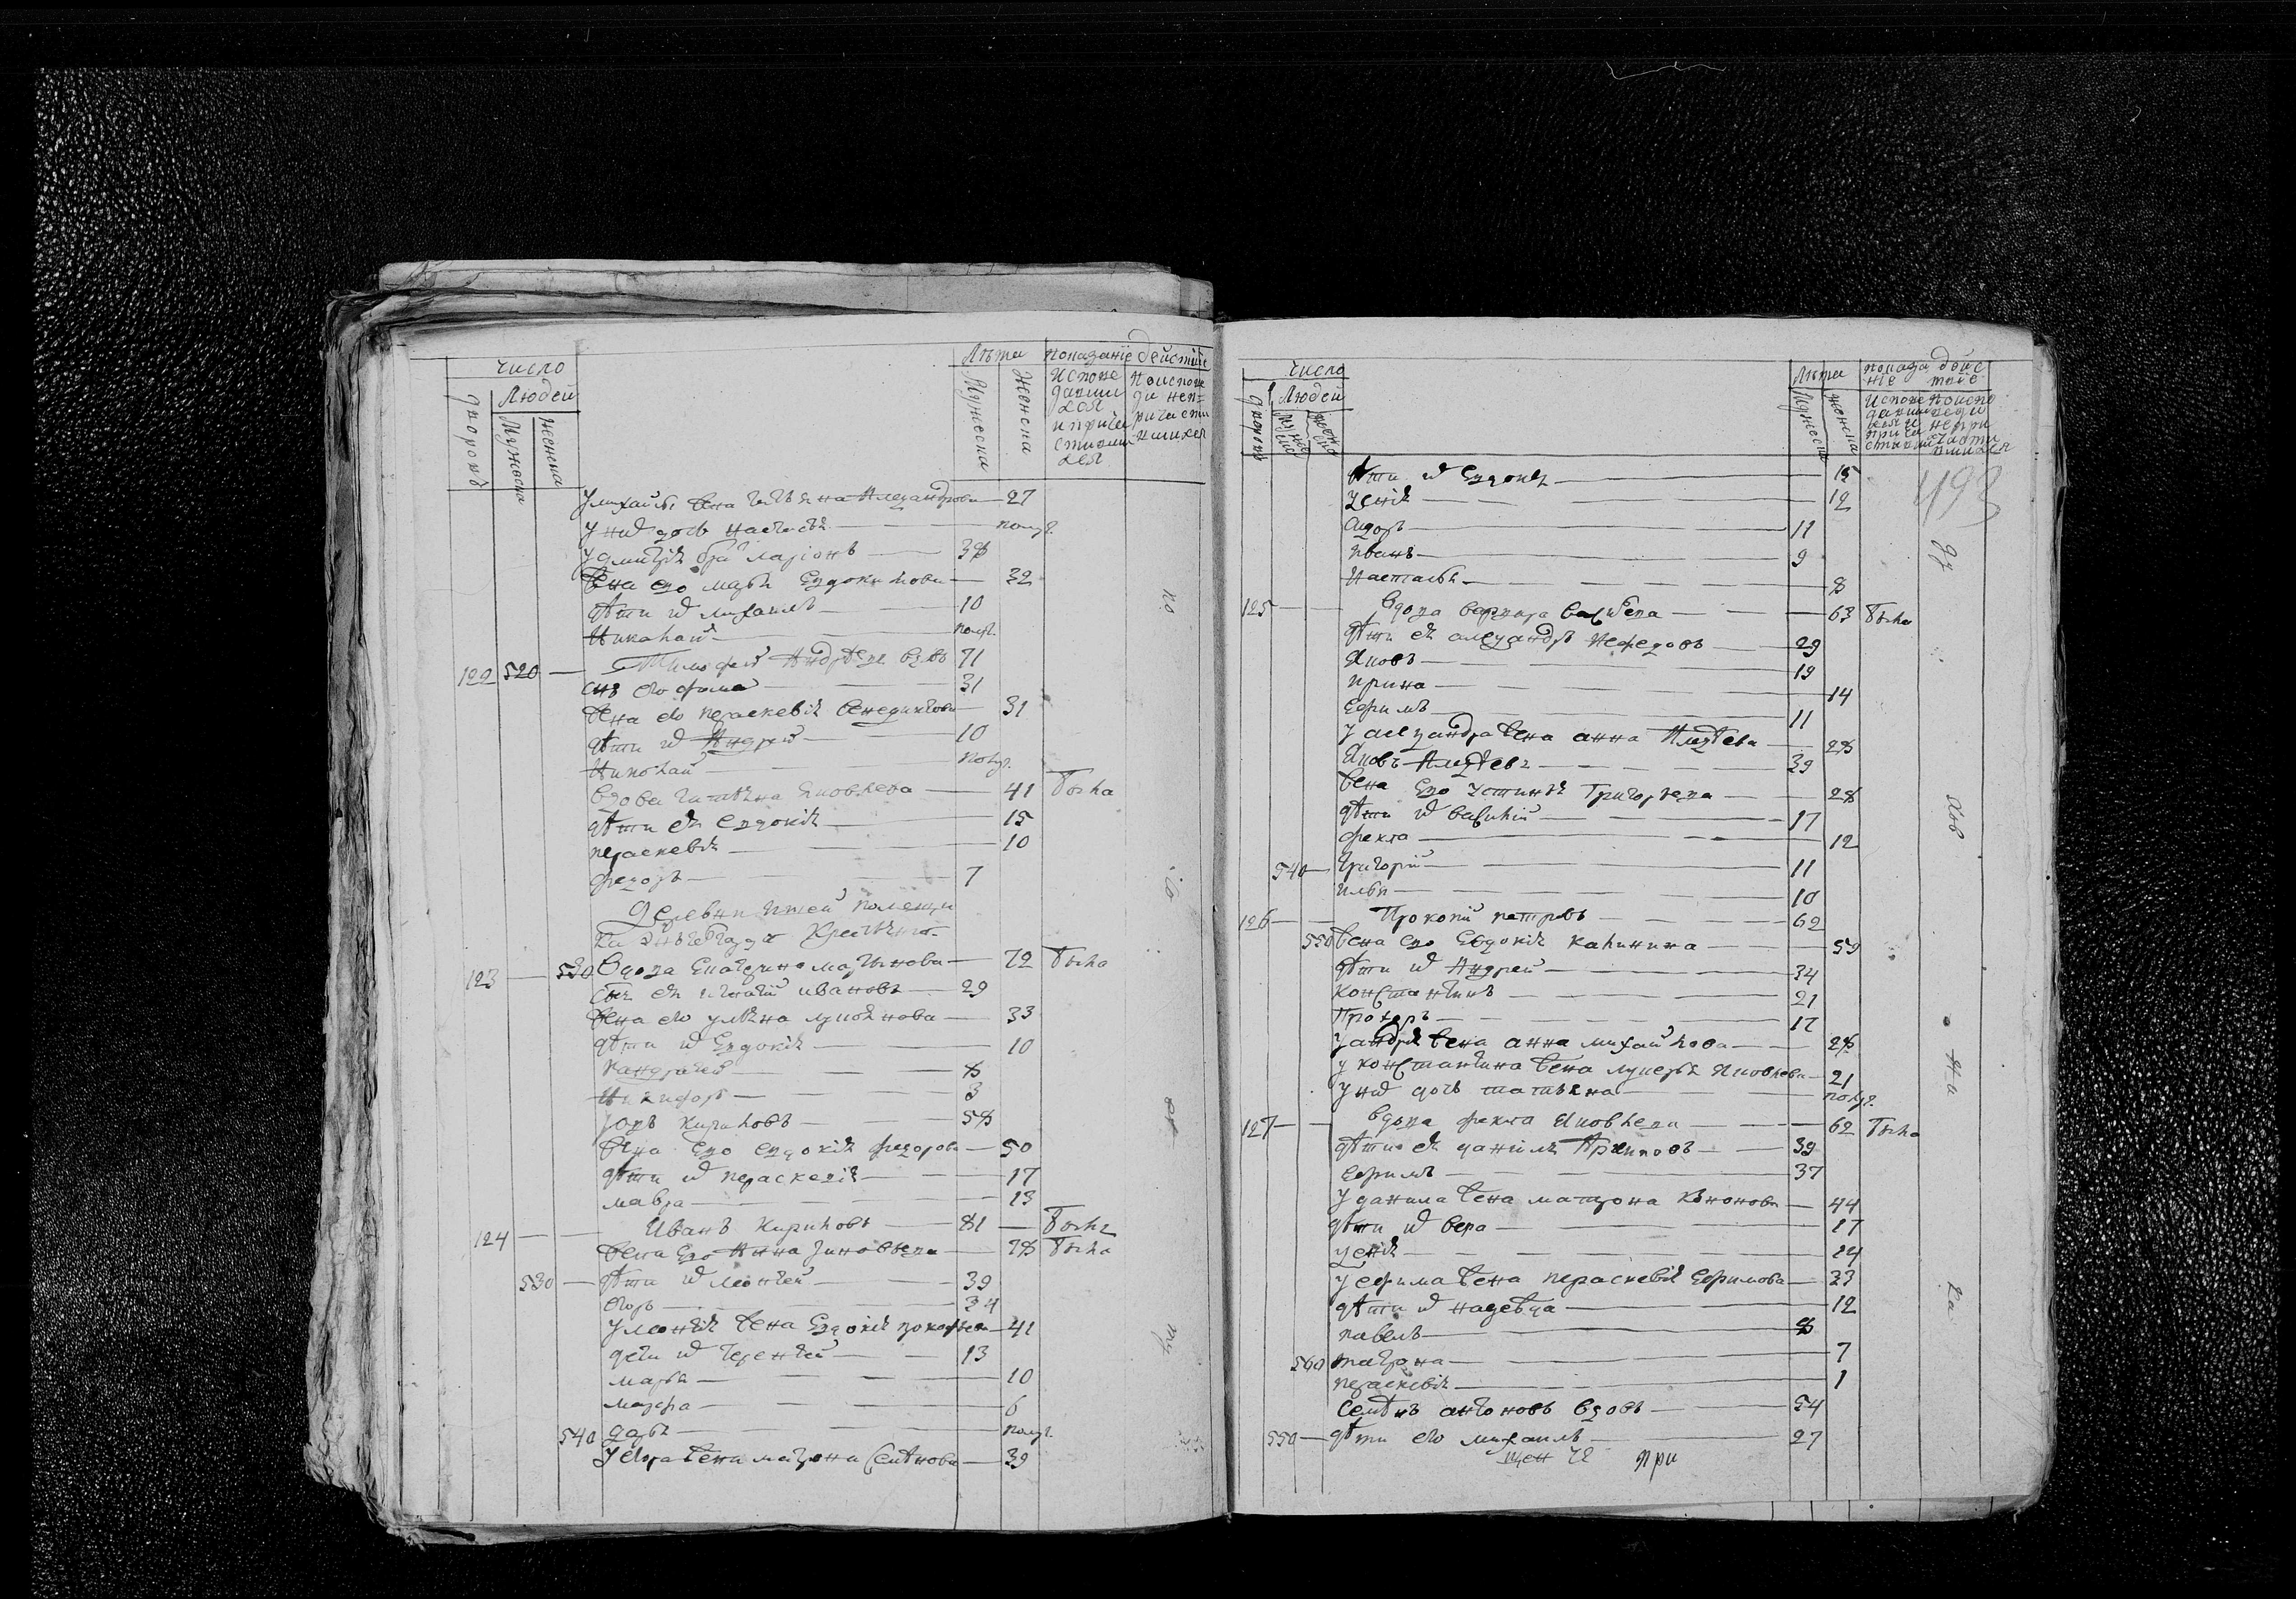 число
Людей
дворовъ
Мужеска
женска
Лѣта
Мужеска
Женска
показаніе действїе
Испове
давши
хся
и причa
стивши
хся
Неиспове
да неп=
ричасти
вшихся
У михайлы жена татьяна Александрова — 27
у них дочь настасья — полуг.
у дмитрїя брат ларїонъ — 38
жена его марья Евдокимова — 32
дѣти их михаилъ — 10
Николай — полуг.
122 520 — Тимофей Андрѣевъ вдовъ 71
снъ его фома — 31
жена его параскевїя Венедиктова — 31
дѣти их Андрей — 10
Николай — полуг.
вдова татьяна Яковлева — 41 была
дѣти ея Евдокїя — 15
параскевїя — 10
федоръ — 7
Деревни помещи
ка крестьяне
123 — 530 Вдова Екатерина мартынова — 72 была
сын ея игнатїй ивановъ — 29
жена его ульяна лукоянова — 33
дѣти их Евдокїя — 10
кандратей — 8
Никифоръ — 3
Iовъ кириловъ — 58
жена Его евдокїя федорова — 50
дѣти их параскевїя — 17
мавра — 13
124 — Иванъ Кириловъ — 81 — былъ
жена Его Анна Зиновьева — 78 была
530 — дѣти их леонтей — 39
егоръ — 34
у леонтїя жена Евдокїя прокофьева — 41
дети их терентей — 13
марья — 10
марфа — 6
540 дарья — полуг.
у егора жена матрона Семѣнова — 39
число
Людей
дворовъ
Лѣта
Мужеска
женска
показа дейс
нїе твїе
493
дѣти их Евдокїя — 15
Ксенїя — 12
сидоръ — 11
иванъ — 9
Настасья — 8
125 — вдова варвара васильева — 63 была
дѣти ея александръ Нефедовъ — 29
Яковъ — 19
ирина — 14
Ефимъ — 11
у александра жена анна Алексѣева — 28
Яковъ Алексѣевъ — 39
жена Его устинья Григорьева — 28
дѣти их василий — 17
фекла — 12
540 — григорий — 11
илья — 10
126 — Прокопїй петровъ — 62
550 жена его Евдокїя калинина — 59
дѣти их Андрей — 34
константинъ — 21
Прохоръ — 17
у андрея жена анна михайлова — 28
у константина жена лукерья Яковлева — 21
у них дочь татьяна — полуг.
127 — вдова фекла Яковлева — 62 была
дѣти ея данилъ Архиповъ — 39
Ефимъ — 37
у данила жена матрона кононова — 44
дѣти их вера — 17
Ксенїя — 14
у ефима жена параскевїя Ефимова — 33
дѣти их надежда — 12
павелъ — 8
560 матрона — 7
параскевїя — 1
семѣнъ антоновъ вдовъ — 54
550 — дѣти его михаилъ — 27
при